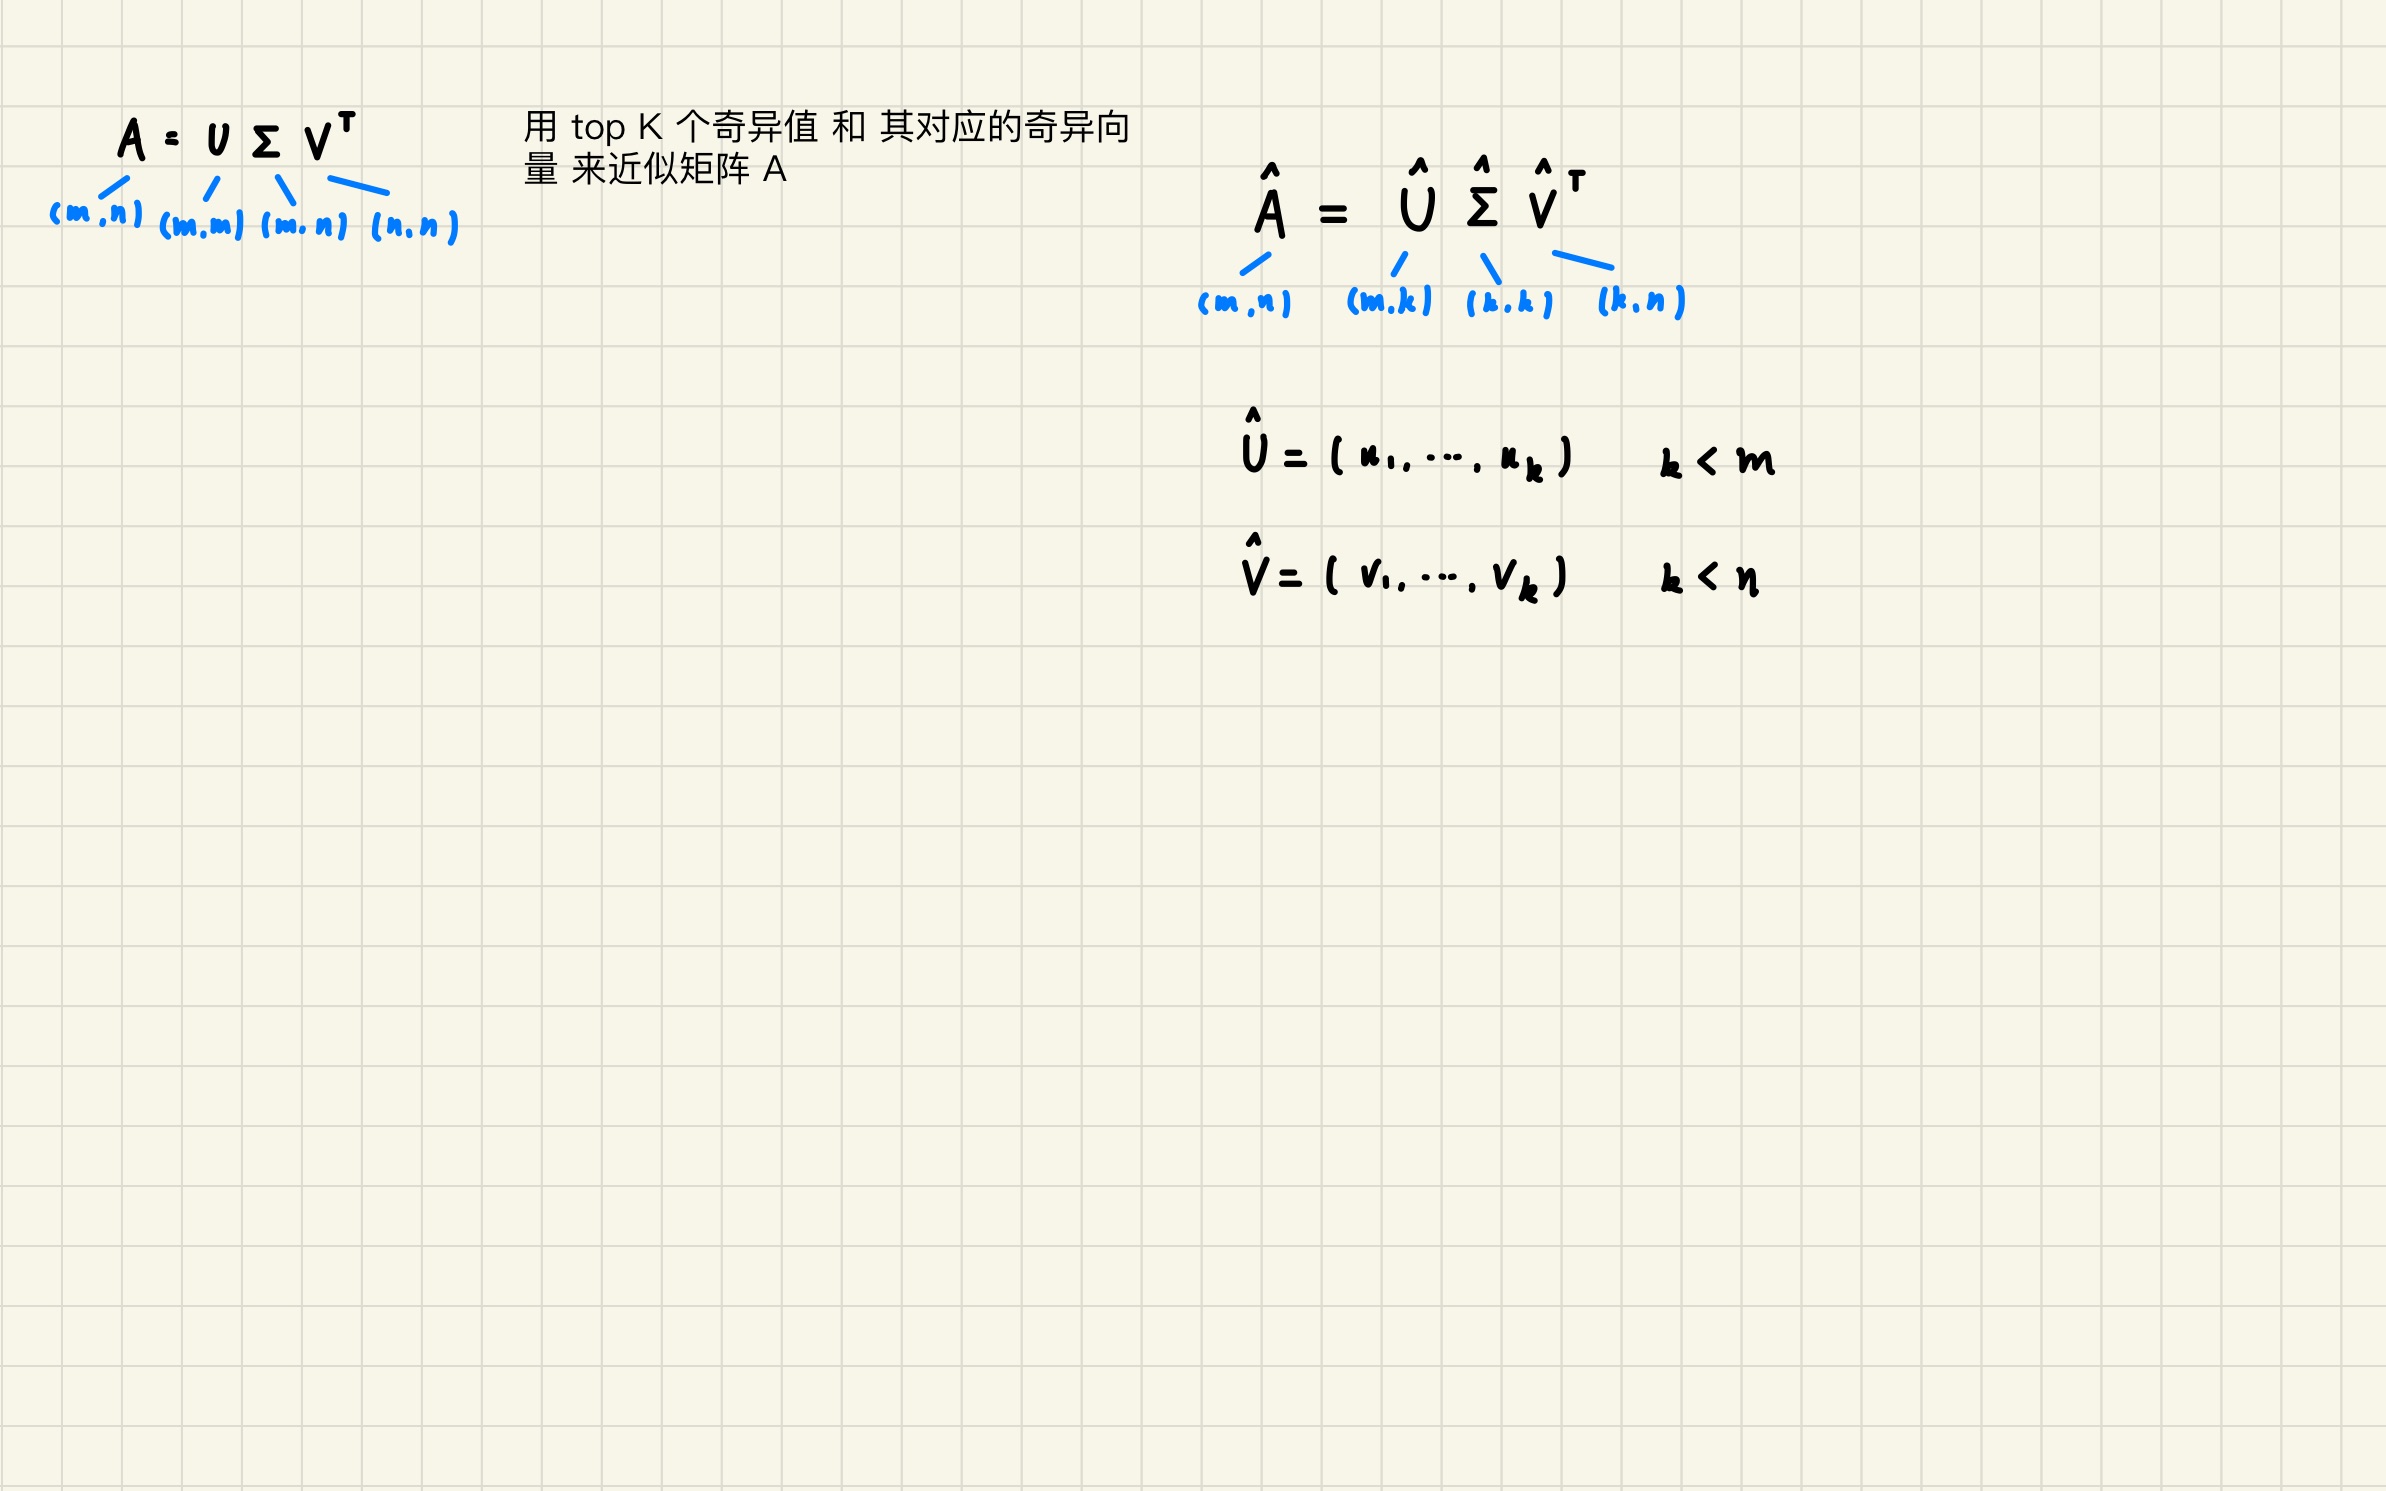 A = U Σ Vᵀ
(m, n) (m, m) (m, n) (n, n)
用 top K 个奇异值 和 其对应的奇异向
量 来近似矩阵 A
Â = Û Σ̂ V̂ᵀ
(m, n) (m, k) (k, k) (k, n)
Û = ( u₁, ⋯, uₖ ) k < m
V̂ = ( v₁, ⋯, vₖ ) k < n